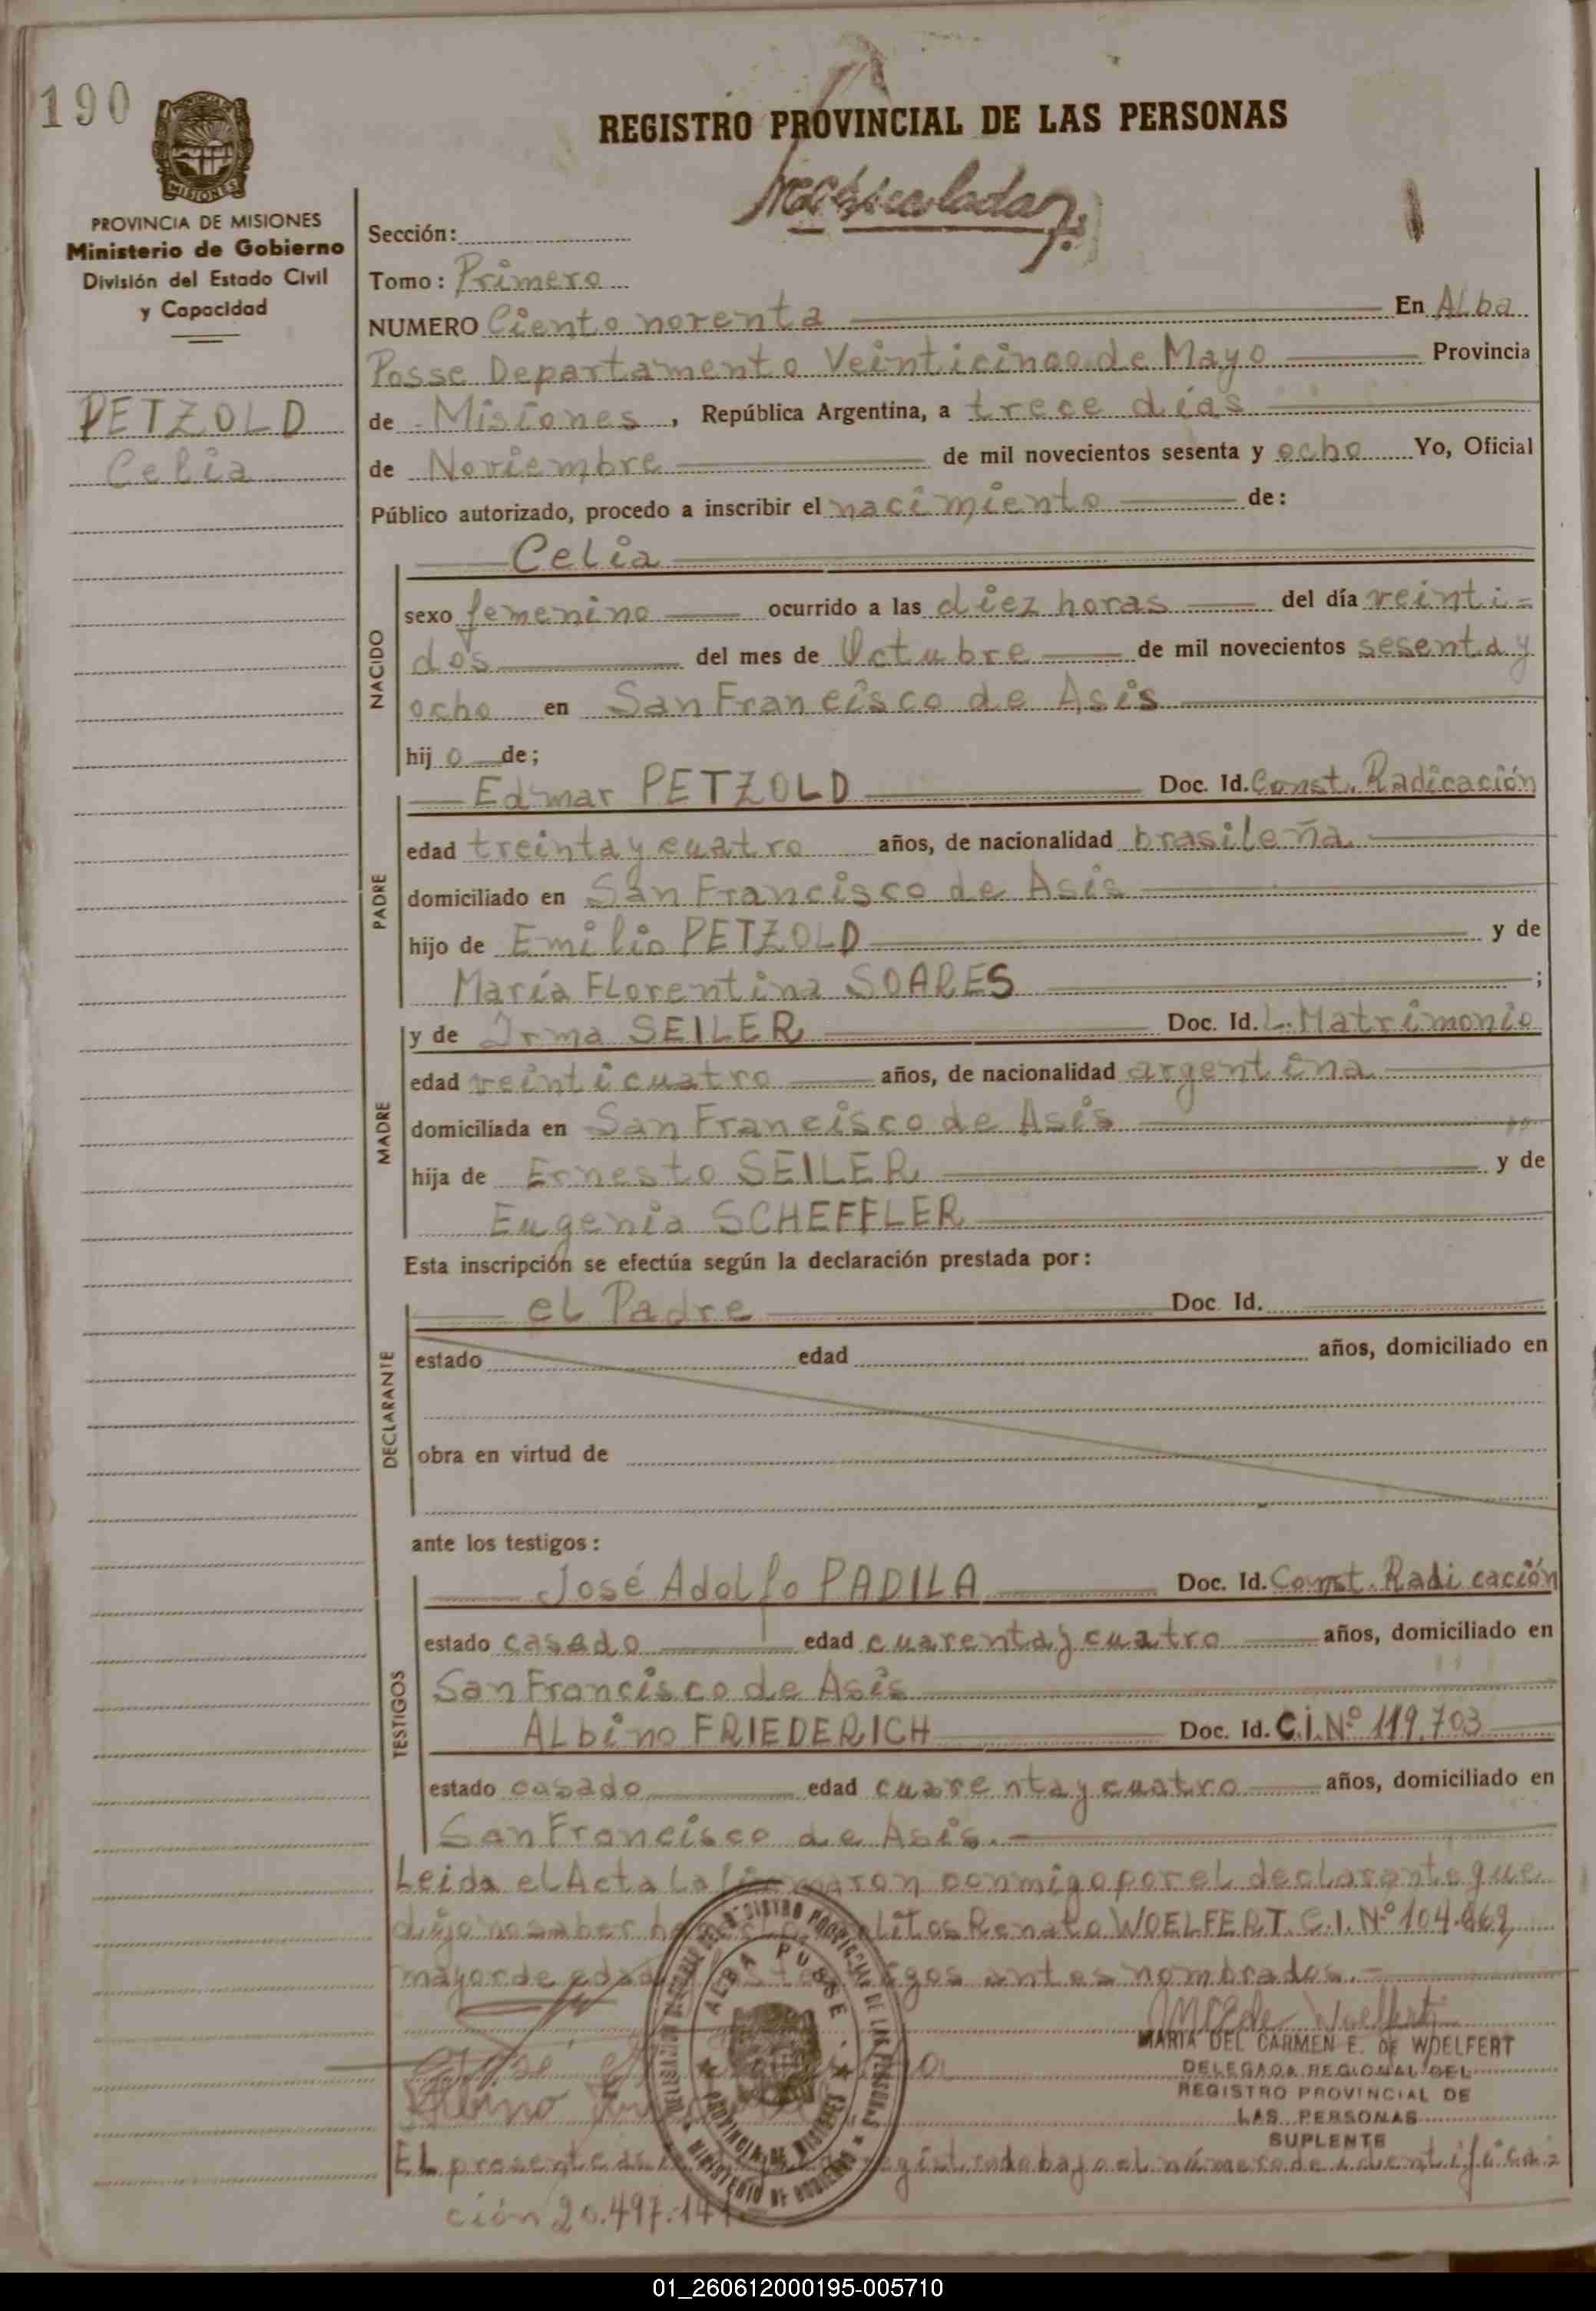 190
REGISTRO PROVINCIAL DE LAS PERSONAS
MISIONES
PROVINCIA DE MISIONES
Ministerio de Gobierno
División del Estado Civil
y Capacidad
PETZOLD
Celia
Sección:
Tomo: Primero
NUMERO Ciento noventa En Alba
Posse Departamento Veinticinco de Mayo Provincia
de Misiones, República Argentina, a trece días
de Noviembre de mil novecientos sesenta y ocho Yo, Oficial
Público autorizado, procedo a inscribir el nacimiento de:
NACIDO
Celia
sexo femenino ocurrido a las diez horas del día veinti-
dos del mes de Octubre de mil novecientos sesenta y
ocho en San Francisco de Asis
hijo de;
PADRE
Edmar PETZOLD Doc. Id. Const. Radicación
edad treinta y cuatro años, de nacionalidad brasileña.
domiciliado en San Francisco de Asis
hijo de Emilio PETZOLD y de
María Florentina SOARES ;
MADRE
y de Irma SEILER Doc. Id. L. Matrimonio
edad veinticuatro años, de nacionalidad argentina
domiciliada en San Francisco de Asis
hija de Ernesto SEILER y de
Eugenia SCHEFFLER
Esta inscripción se efectúa según la declaración prestada por:
DECLARANTE
el Padre Doc. Id.
estado edad años, domiciliado en
obra en virtud de
ante los testigos:
TESTIGOS
José Adolfo PADILA Doc. Id. Const. Radicación
estado casado edad cuarenta y cuatro años, domiciliado en
San Francisco de Asis
Albino FRIEDERICH Doc. Id. C.I. Nº 119.703
estado casado edad cuarenta y cuatro años, domiciliado en
San Francisco de Asis.-
Leida el Acta la firmaron conmigo por el declarante que
dijo no saber Renato WOELFERT. C.I. Nº
mayor de edad antes nombrados.-
ALBA POSSE
PROVINCIA DE MISIONES
MINISTERIO DE GOBIERNO
MARIA DEL CARMEN E. DE WOELFERT
DELEGADA REGIONAL DEL
REGISTRO PROVINCIAL DE
LAS PERSONAS
SUPLENTE
El presente registrado bajo el número de identifica-
ción 20.497.14
01_260612000195-005710